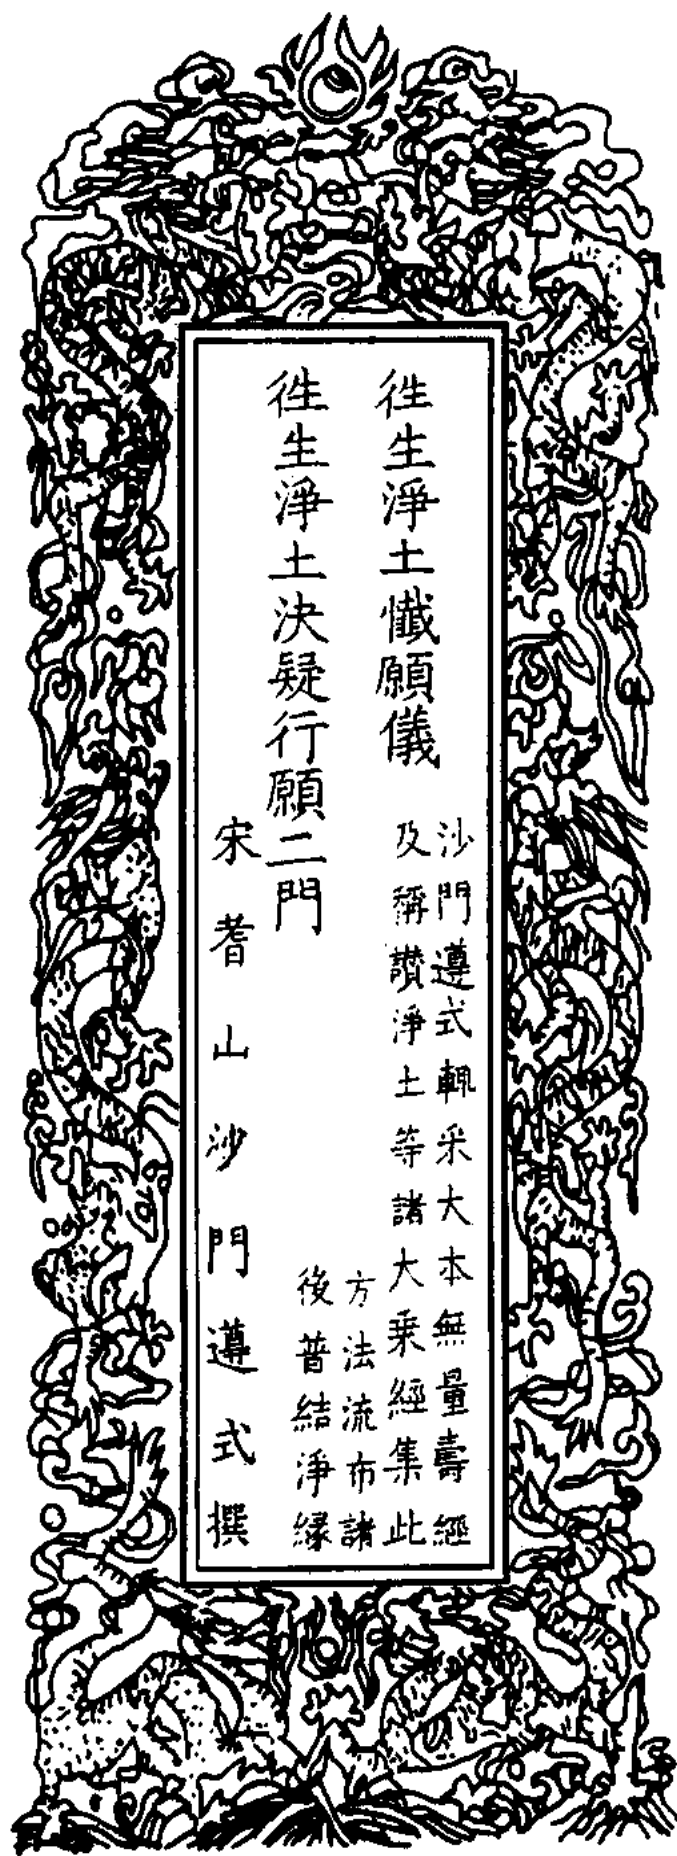 徃生淨土懺願儀
沙門遵式輒采大本無量壽經
及稱讚淨土等諸大乗經集此
方法流布諸
後普結淨緣
徃生淨土決疑行願二門
宋耆山沙門遵式撰